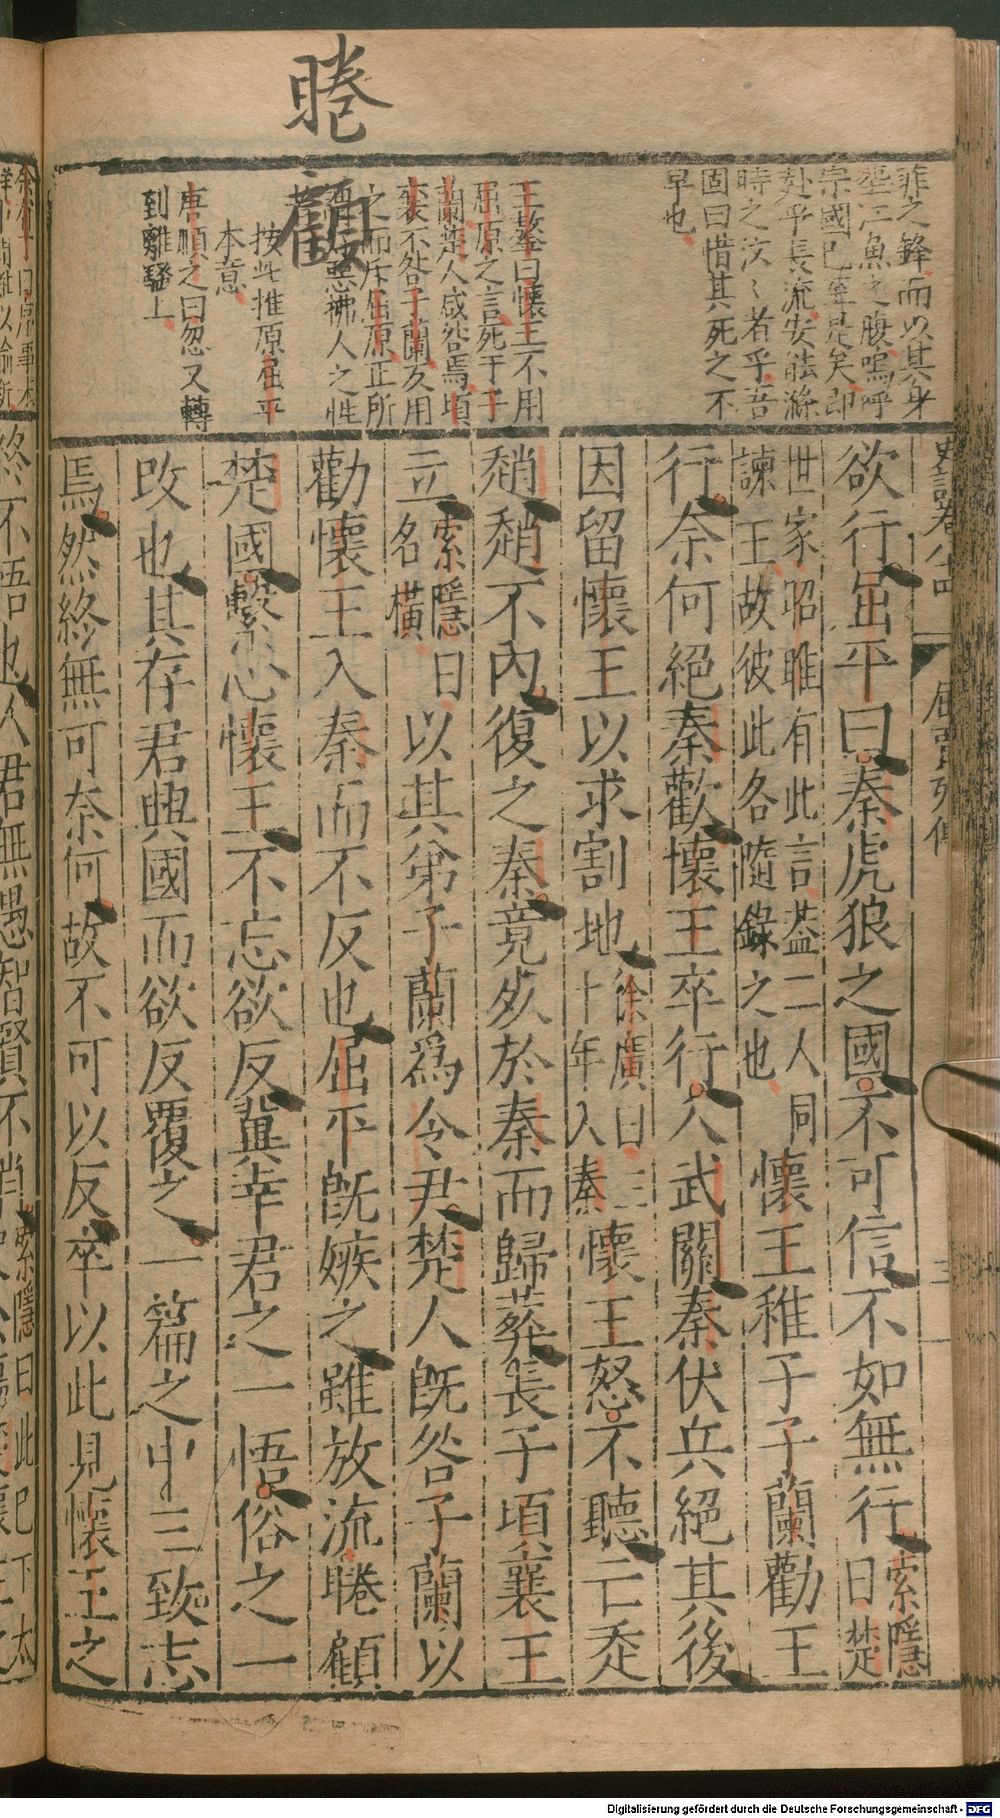 睠
顧
非之鋒而以其身
葬江魚之腹嗚呼
宗國已矣是矣即
赴乎長流安能滌
時之汶〻者乎吾
固曰惜其死之不
早也
王鏊曰懷王不用
屈原之言死于
蘭楚人咸咎焉頃
襄不咎子蘭反用
之而斥屈原正所
惡拂人之性
按此推原屈平
本意
唐順之曰忽又轉
到離騷上
史記卷八十四
屈賈列傳
三
欲行屈平曰秦虎狼之國不可信不如無行
索隱
曰楚
世家昭睢有此言葢二人同
諫王故彼此各隨錄之也
懷王稚子子蘭勸王
行奈何絕秦歡懷王卒行入武關秦伏兵絕其後
因留懷王以求割地
徐廣曰三
十年入秦
懷王怒不聽亡走
趙趙不內復之秦竟死於秦而歸葬長子頃襄王
立
索隱曰
名橫
以其弟子蘭爲令尹楚人旣咎子蘭以
勸懷王入秦而不反也屈平旣嫉之雖放流睠顧
楚國繫心懷王不忘欲反冀幸君之一悟俗之一
改也其存君興國而欲反覆之一篇之中三致志
焉然終無可奈何故不可以反卒以此見懷王之
終不悟也人君無愚智賢不肖
索隱曰此已下太
Digitalisierung gefördert durch die Deutsche Forschungsgemeinschaft - DFG